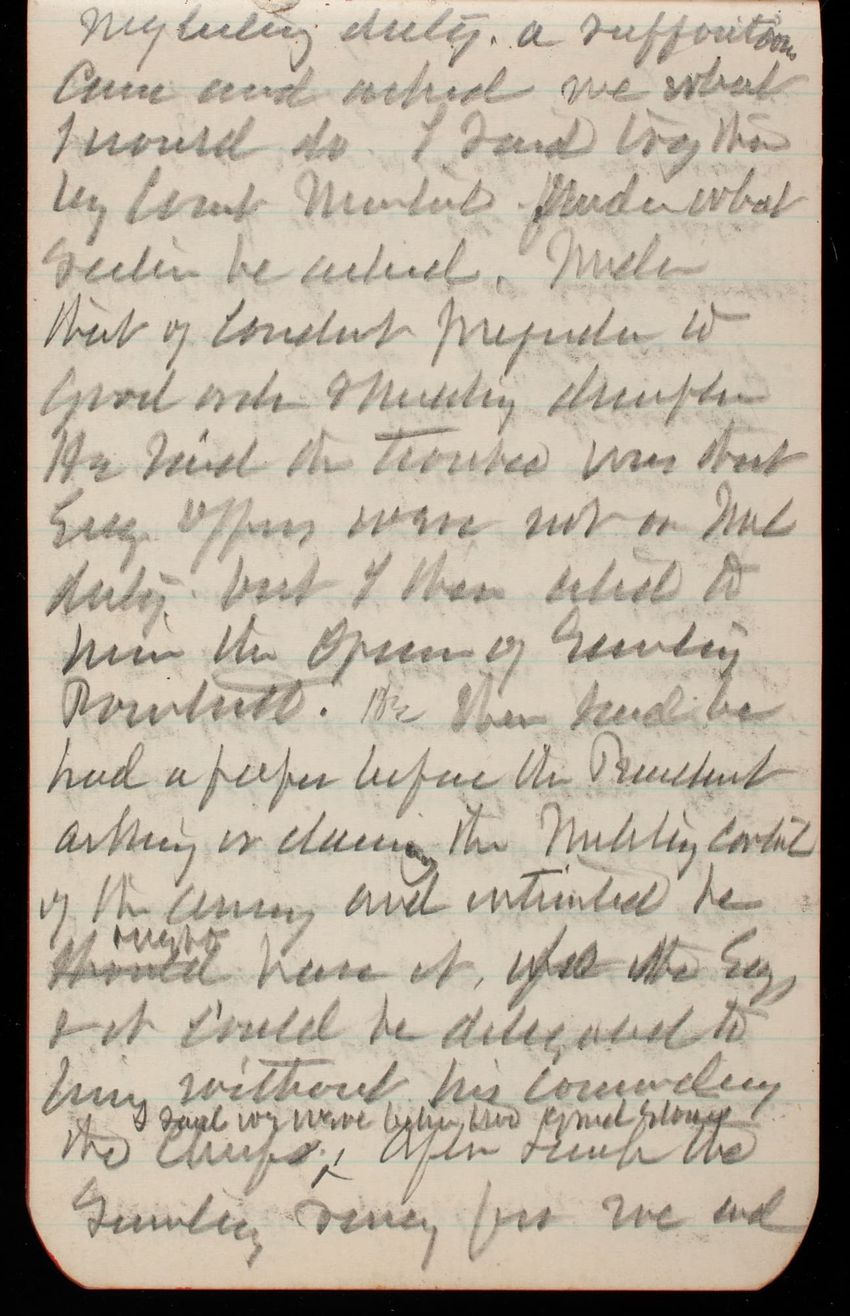 neglecting duty. a supposition
Came and asked me what
I would do. I said try them
by Court Martial. Under what
Section he asked. Under
that of Conduct prejudice to
good order & Military discipline
He said the trouble was that
Eng. Officers were not on Mil
duty. but I then cited to
him the Opinion of Secretary
Proctor. He then said he
had a paper before the President
asking or claiming the Military Control
of the army and intimated he
might
should have it, the Eng
& it could be delegated to
him without his commanding
I said we were better left alone
the Chiefs. After lunch the
Secretary sent for me and